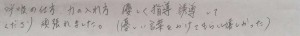 呼吸の仕方 力の入れ方 優しく指導 誘導 して
くださり 頑張れました。(優しい言葉をかけてもらい嬉しかった)